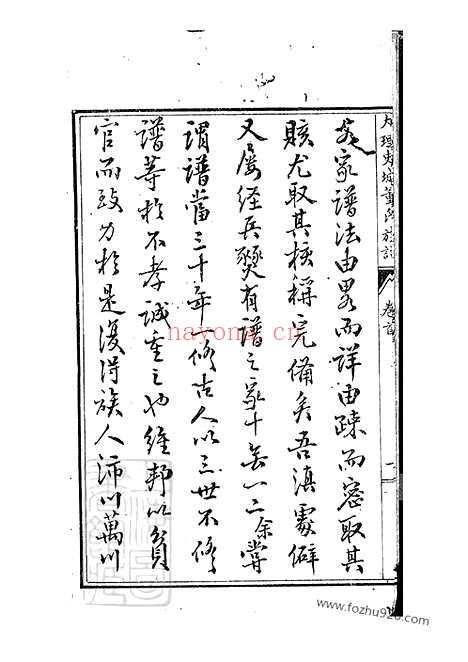 大理史城董氏族譜 卷首 一
家譜法由畧而詳由疎而密取其
賅尤取其核稱完備矣吾滇處僻
又屢经兵燹有譜之家十無一二余嘗
謂譜當三十年修古人以三世不修
譜等於不孝誠重之也維邦以
官而致力於是復得族人沛川萬川
nayona.cn
www.fozhu920.com